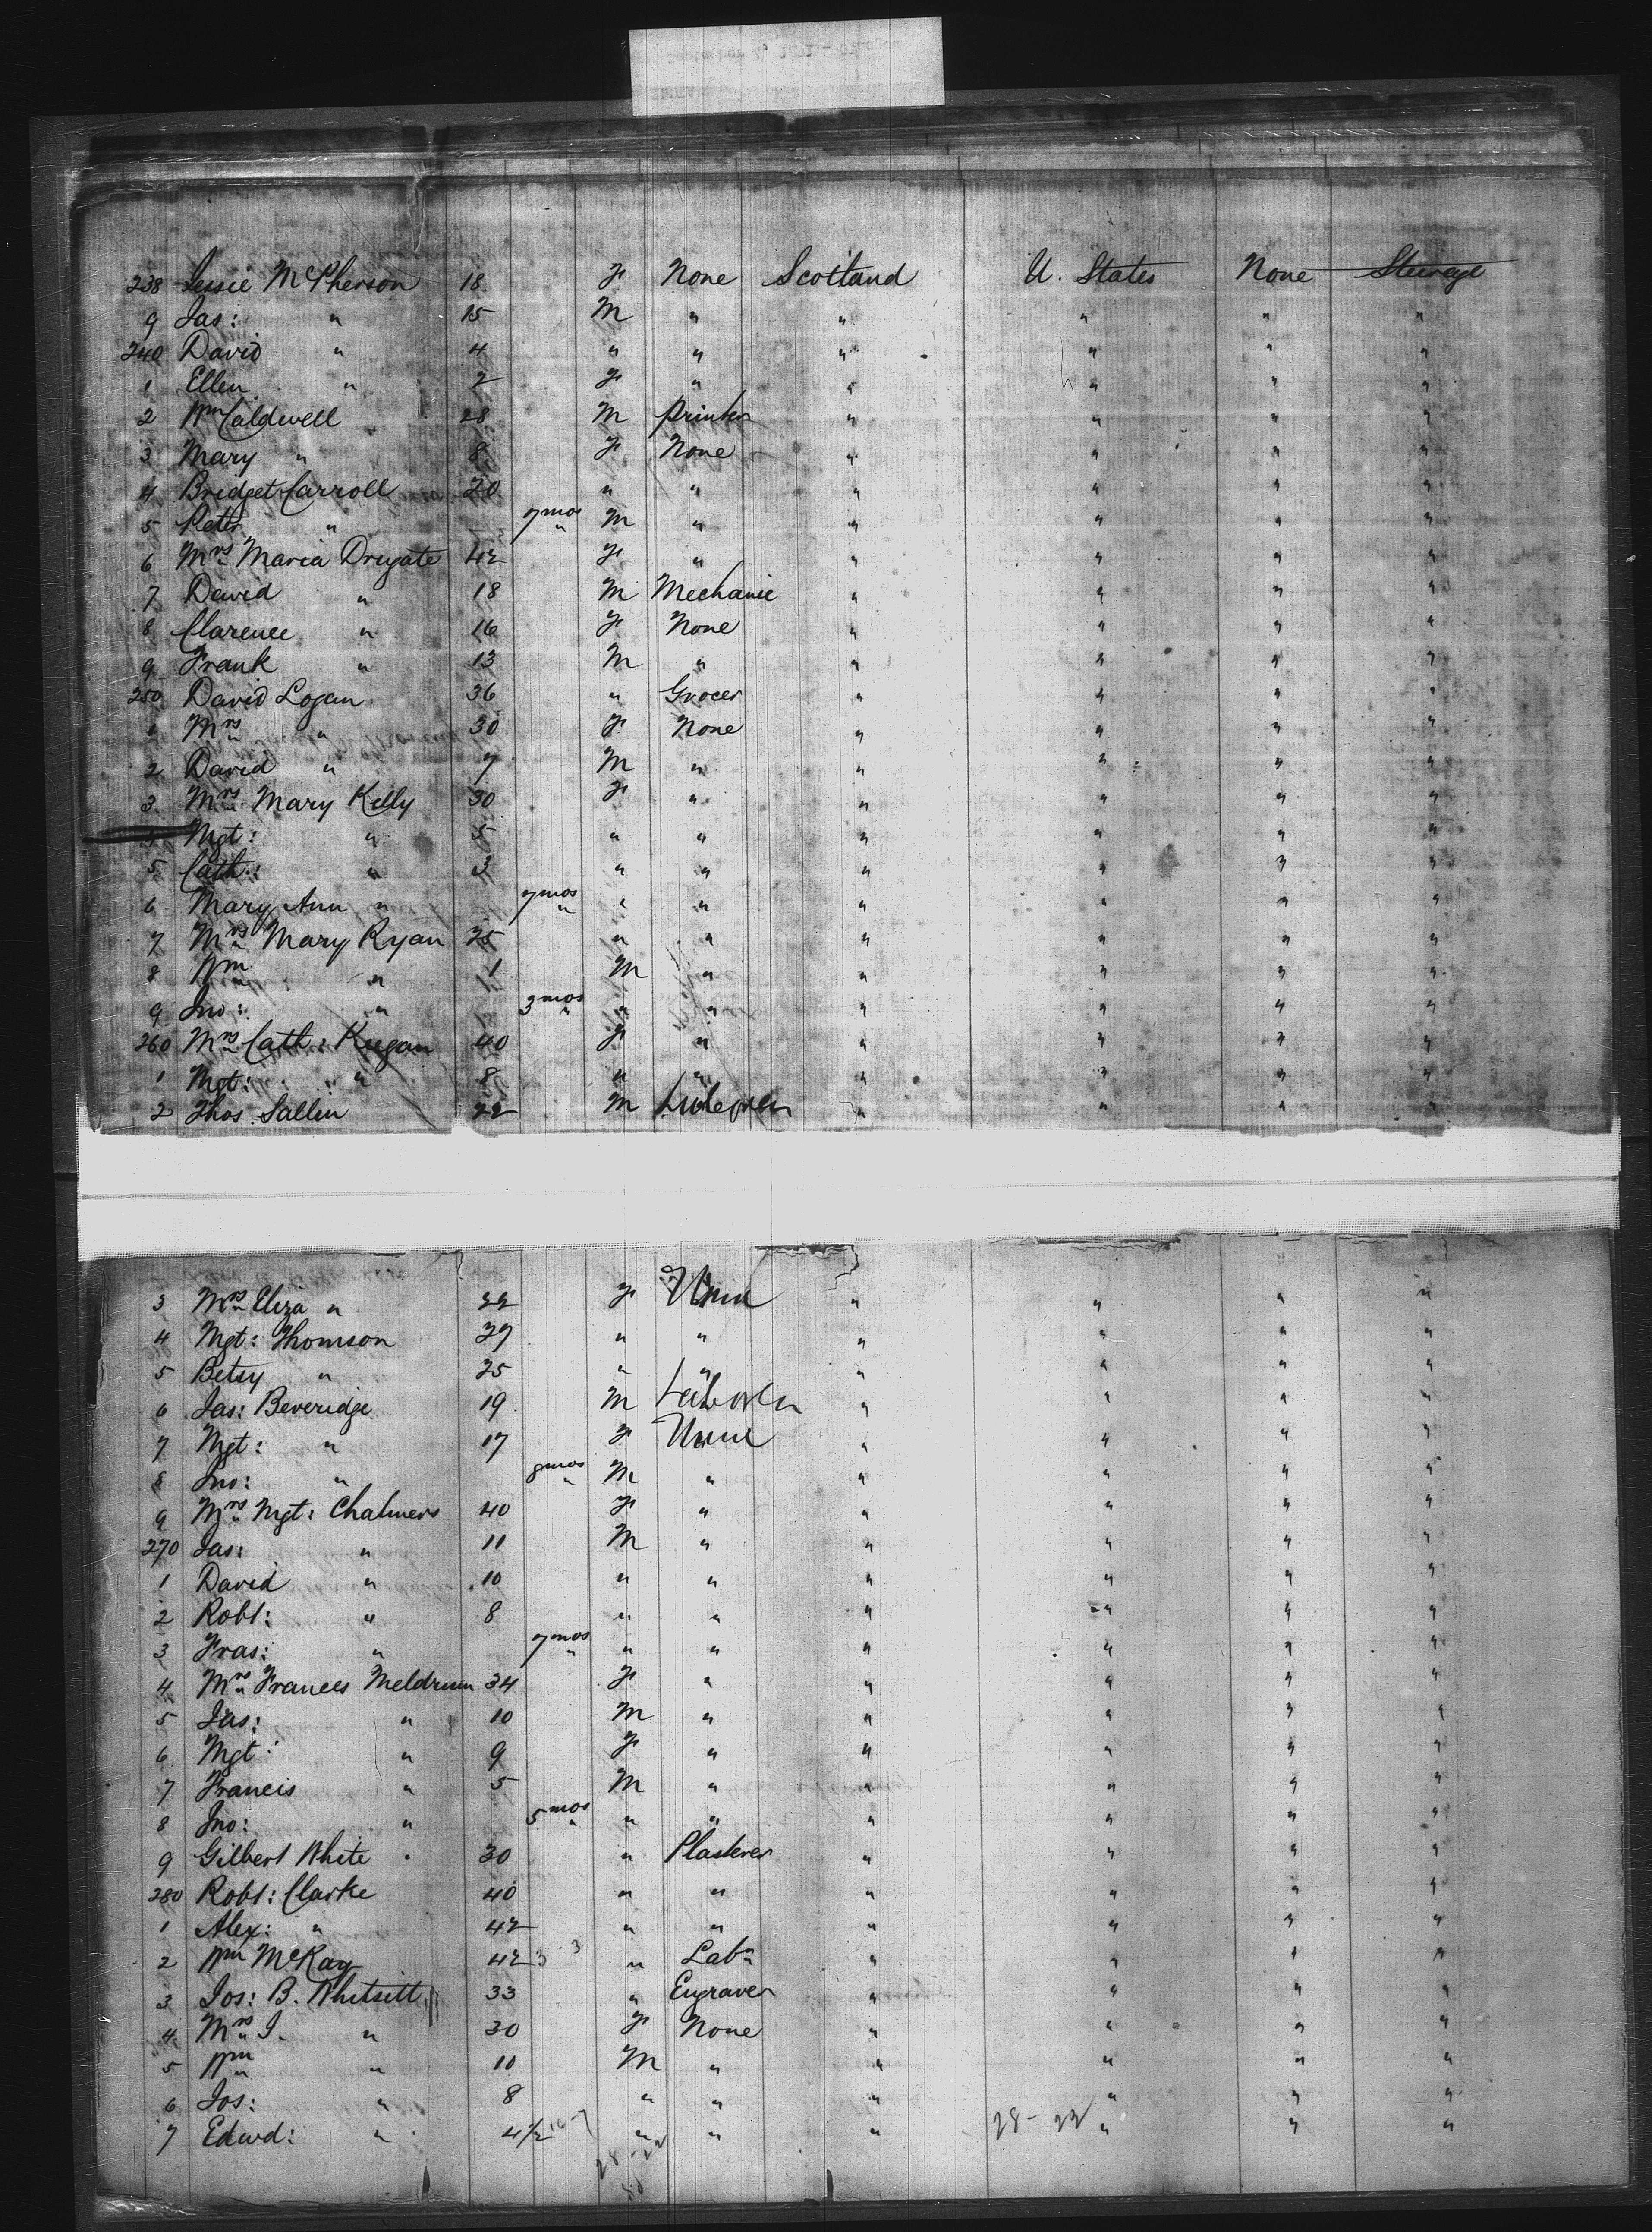 238 Jessie McPherson 18 F None Scotland U. States None Steerage
9 Jas: " 15 M " " " " "
240 David " 4 " " " " " "
1 Ellen " 2 F " " " " "
2 Wm Caldwell 28 M Printer " " " "
3 Mary " 8 F None " " " "
4 Bridget Carroll 20 " " " " " "
5 Peter " 7 mos M " " " " "
6 Mrs Maria Drugate 42 F " " " " "
7 David " 18 M Mechanic " " " "
8 Clarence " 16 F None " " " "
9 Frank " 13 M " " " " "
250 David Logan 36 " Grocer " " " "
1 Mrs " 30 F None " " " "
2 David " 7 M " " " " "
3 Mrs Mary Kelly 30 F " " " " "
4 Mgt: " 5 " " " " " "
5 Cath: " 3 " " " " " "
6 Mary Ann " 7 mos " " " " " "
7 Mrs Mary Ryan 25 " " " " " "
8 Wm " 1 M " " " " "
9 Jno: " 3 mos " " " " " "
260 Mrs Cath: Keegan 40 F " " " " "
1 Mgt: " 8 " " " " " "
2 Thos. Sallin 22 M " " " "
3 Mrs Eliza " 22 F None " " " "
4 Mgt: Thomson 27 " " " " " "
5 Betsy " 25 " " " " " "
6 Jas: Beveridge 19 M Laborer " " " "
7 Mgt: " 17 F None " " " "
8 Jno: " 8 mos M " " " " "
9 Mrs Mgt: Chalmers 40 F " " " " "
270 Jas: " 11 M " " " " "
1 David " 10 " " " " " "
2 Robt: " 8 " " " " " "
3 Fras: " 7 mos " " " " " "
4 Mrs Frances Meldrum 34 F " " " " "
5 Jas: " 10 M " " " " "
6 Mgt: " 9 F " " " " "
7 Francis " 5 M " " " " "
8 Jno: " 5 mos " " " " " "
9 Gilbert White 30 " Plasterer " " " "
280 Robt: Clarke 40 " " " " " "
1 Alex: " 42 " " " " " "
2 Wm McKay 42 3 3 " Labr " " " "
3 Jos: B. Whitsitt 33 " Engraver " " " "
4 Mrs J. " 30 F None " " " "
5 Wm " 10 M " " " " "
6 Jos: " 8 " " " " " "
7 Edwd: " 4 1/2 " " " " " "